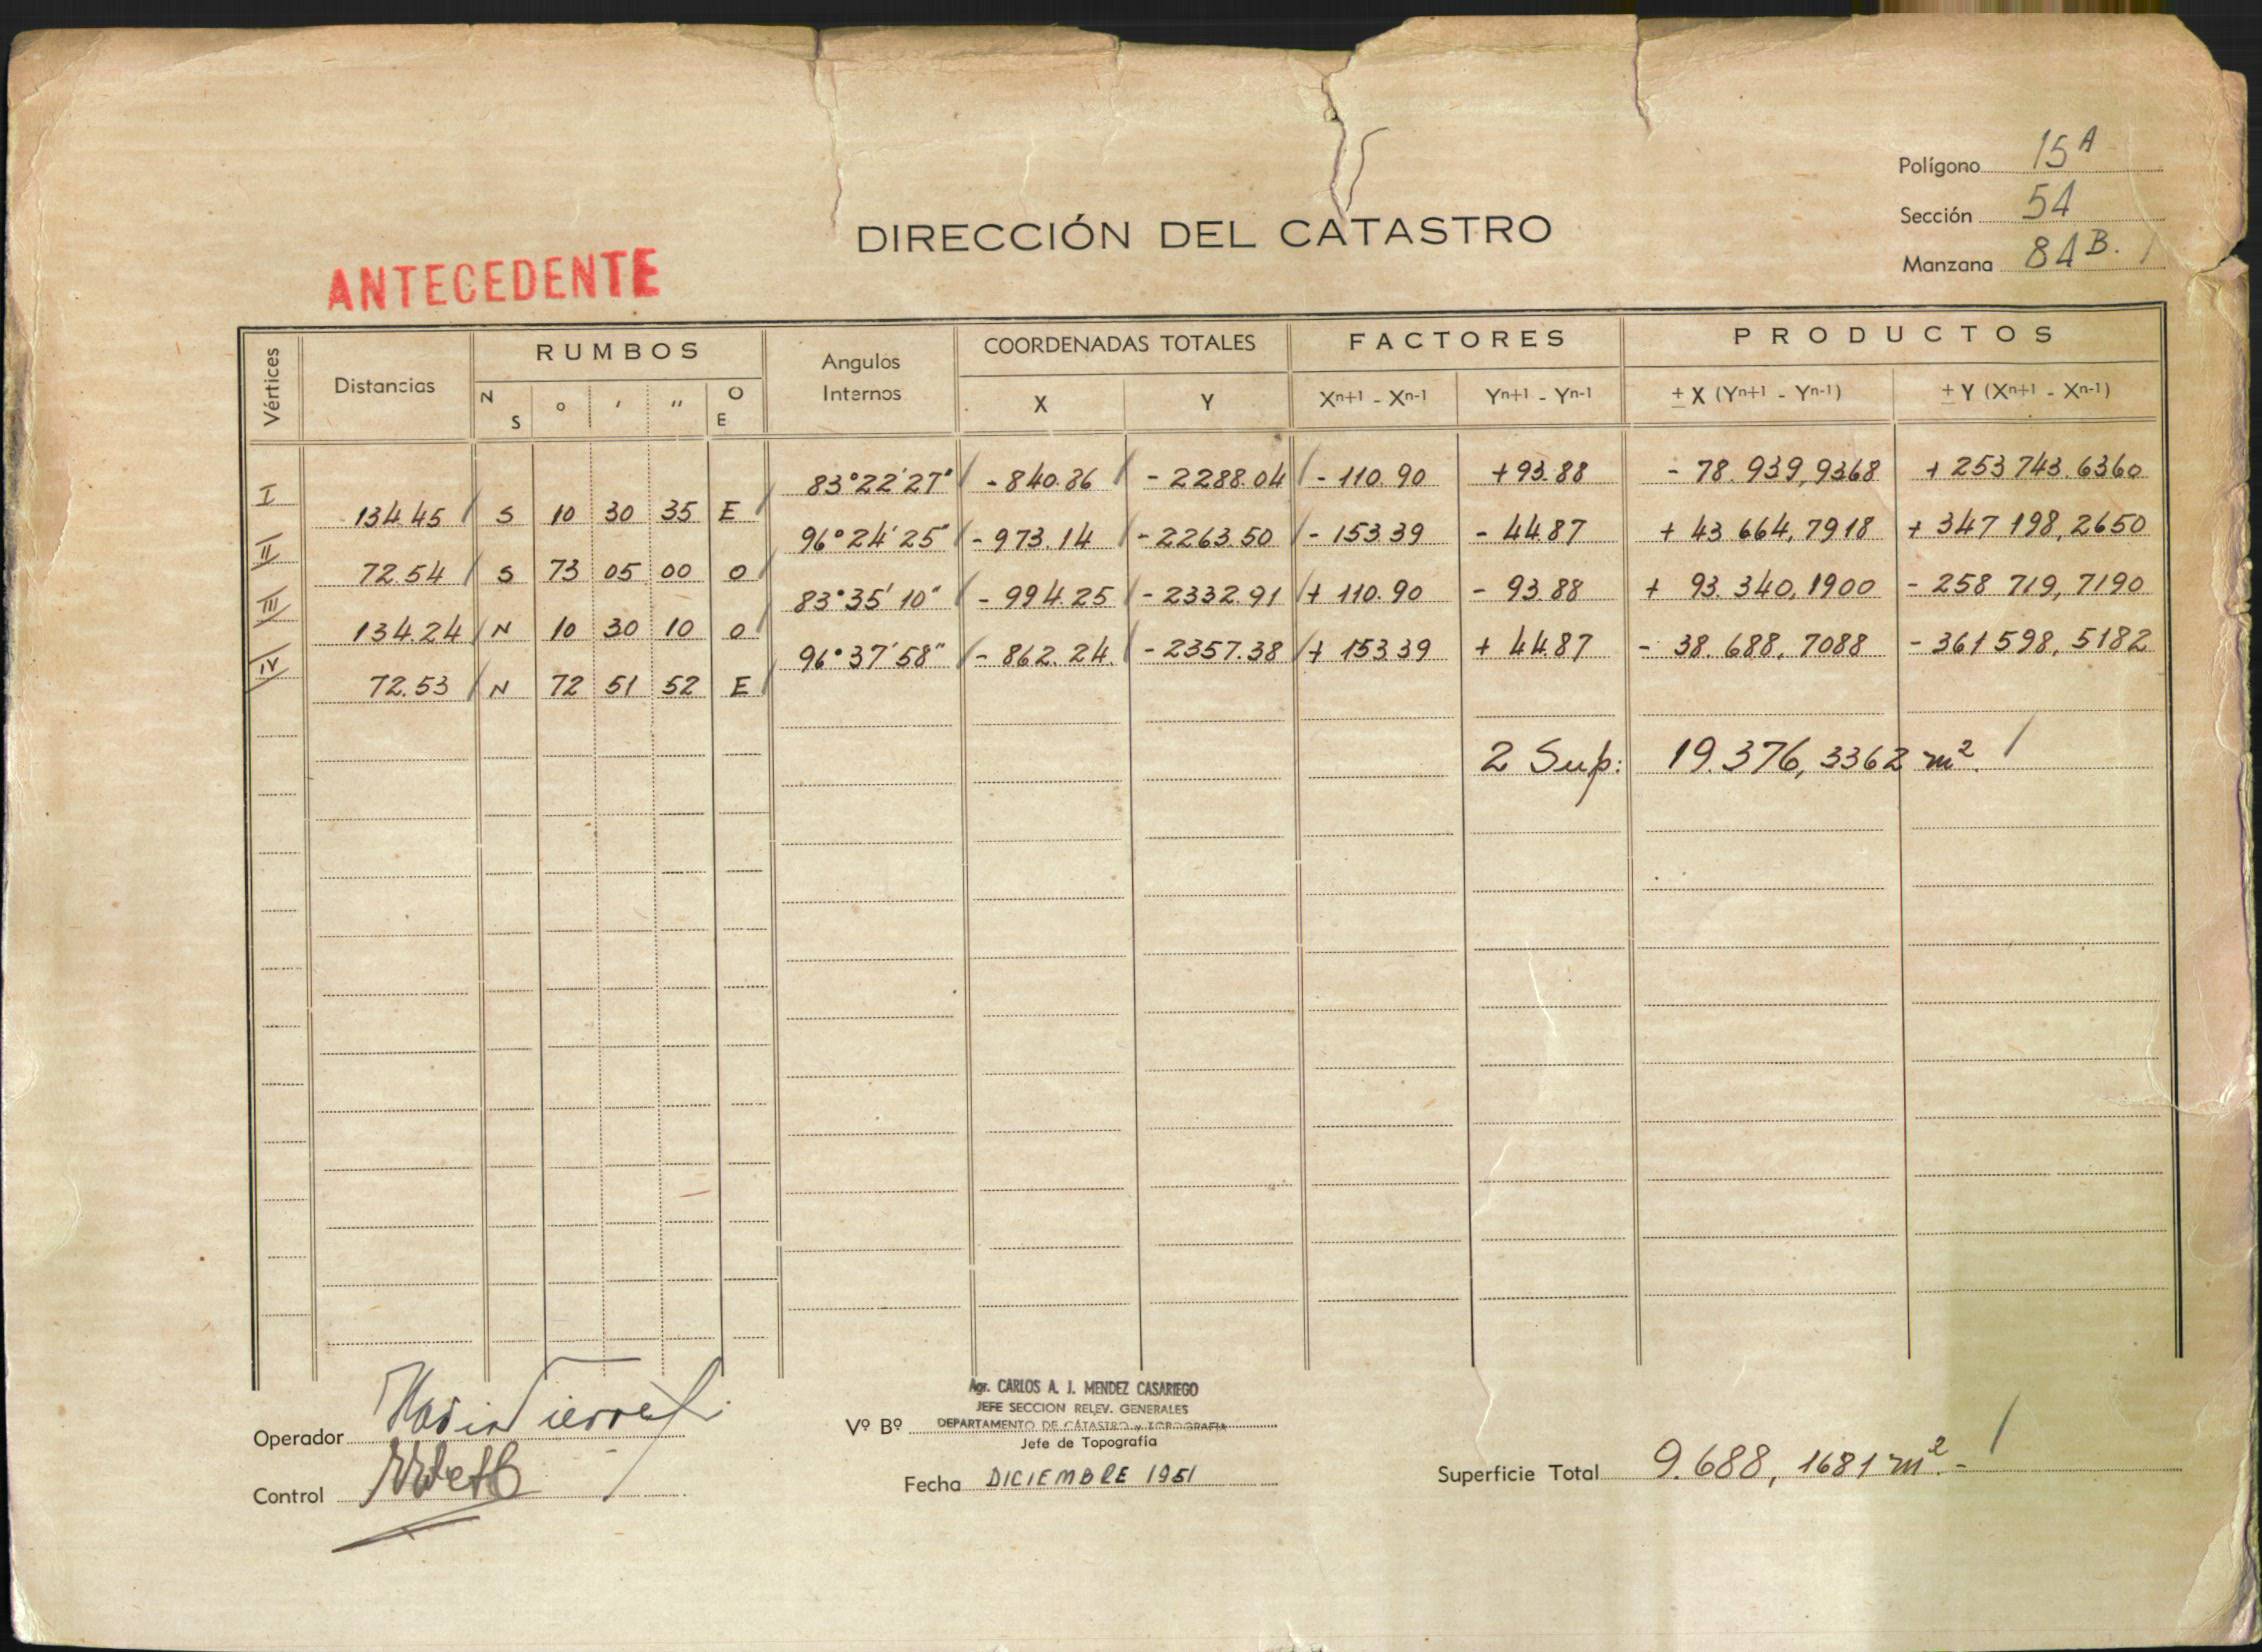 Polígono 15 A
Sección 54
Manzana 84 B.
DIRECCIÓN DEL CATASTRO
ANTECEDENTE
Vértices Distancias RUMBOS Angulos Internos COORDENADAS TOTALES FACTORES PRODUCTOS
N S ° ' " O E X Y Xn+1 - Xn-1 Yn+1 - Yn-1 ± X (Yn+1 - Yn-1) ± Y (Xn+1 - Xn-1)
I 83°22'27" - 840.86 - 2288.04 - 110.90 + 93.88 - 78.939,9368 + 253 743.6360
134.45 S 10 30 35 E
II 96°24'25" - 973.14 - 2263.50 - 153.39 - 44.87 + 43 664,7918 + 347 198,2650
72.54 S 73 05 00 O
III 83°35'10" - 994.25 - 2332.91 + 110.90 - 93.88 + 93.340,1900 - 258 719,7190
134.24 N 10 30 10 O
IV 96°37'58" - 862.24. - 2357.38 + 153.39 + 44.87 - 38.688,7088 - 361 598,5182
72.53 N 72 51 52 E
2 Sup: 19.376,3362 m².
Agr. CARLOS A. J. MENDEZ CASARIEGO
JEFE SECCION RELEV. GENERALES
Operador Vº Bº DEPARTAMENTO DE CATASTRO y TOPOGRAFIA
Jefe de Topografía
Control Fecha DICIEMBRE 1951 Superficie Total 9.688,1681 m².-